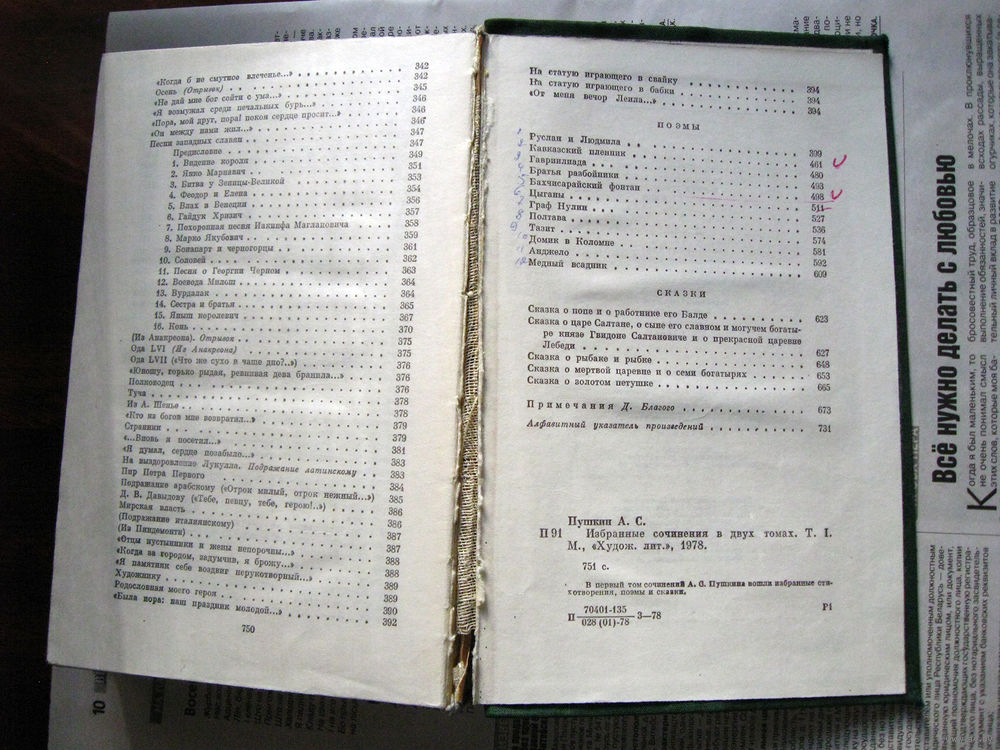 «Когда б не смутное влеченье...» 342
Осень (Отрывок) 342
«Не дай мне бог сойти с ума...» 345
«Я возмужал среди печальных бурь...» 346
«Пора, мой друг, пора! покоя сердце просит...» 346
«Он между нами жил...» 346
Песни западных славян
Предисловие 347
1. Видение короля 349
2. Янко Марнавич 351
3. Битва у Зеницы-Великой 353
4. Феодор и Елена 354
5. Влах в Венеции 356
6. Гайдук Хризич 357
7. Похоронная песня Иакинфа Маглановича 358
8. Марко Якубович 359
9. Бонапарт и черногорцы 361
10. Соловей 362
11. Песня о Георгии Черном 363
12. Воевода Милош 364
13. Вурдалак 364
14. Сестра и братья 365
15. Яныш королевич 367
16. Конь 370
(Из Анакреона). Отрывок 375
Ода LVI (Из Анакреона) 375
Ода LVII («Что же сухо в чаше дно?..») 376
«Юношу, горько рыдая, ревнивая дева бранила...» 376
Полководец 376
Туча 378
Из А. Шенье 378
«Кто из богов мне возвратил...» 379
Странник 379
«...Вновь я посетил...» 381
«Я думал, сердце позабыло...» 383
На выздоровление Лукулла. Подражание латинскому 383
Пир Петра Первого 384
Подражание арабскому («Отрок милый, отрок нежный...») 385
Д. В. Давыдову («Тебе, певцу, тебе, герою!..») 386
Мирская власть 386
(Подражание италиянскому) 387
(Из Пиндемонти) 387
«Отцы пустынники и жены непорочны...» 387
«Когда за городом, задумчив, я брожу...» 388
«Я памятник себе воздвиг нерукотворный...» 389
Художнику 389
Родословная моего героя 390
«Была пора: наш праздник молодой...» 392
750
На статую играющего в свайку 394
На статую играющего в бабки 394
«От меня вечор Леила...» 394
ПОЭМЫ
Руслан и Людмила 399
Кавказский пленник 461
Гавриилиада 480
Братья разбойники 493
Бахчисарайский фонтан 498
Цыганы 511
Граф Нулин 527
Полтава 536
Тазит 574
Домик в Коломне 581
Анджело 592
Медный всадник 609
СКАЗКИ
Сказка о попе и о работнике его Балде 623
Сказка о царе Салтане, о сыне его славном и могучем богаты-
ре князе Гвидоне Салтановиче и о прекрасной царевне
Лебеди 627
Сказка о рыбаке и рыбке 648
Сказка о мертвой царевне и о семи богатырях 653
Сказка о золотом петушке 665
Примечания Д. Благого 673
Алфавитный указатель произведений 731
Пушкин А. С.
П 91 Избранные сочинения в двух томах. Т. I.
М., «Худож. лит.», 1978.
751 с.
В первый том сочинений А. С. Пушкина вошли избранные сти-
хотворения, поэмы и сказки.
П 70401-135 3—78
028 (01)-78
Р1
Всё нужно делать с любовью
Когда я был маленьким, то
не очень понимал смысл
этих слов, которые моя ба-
10